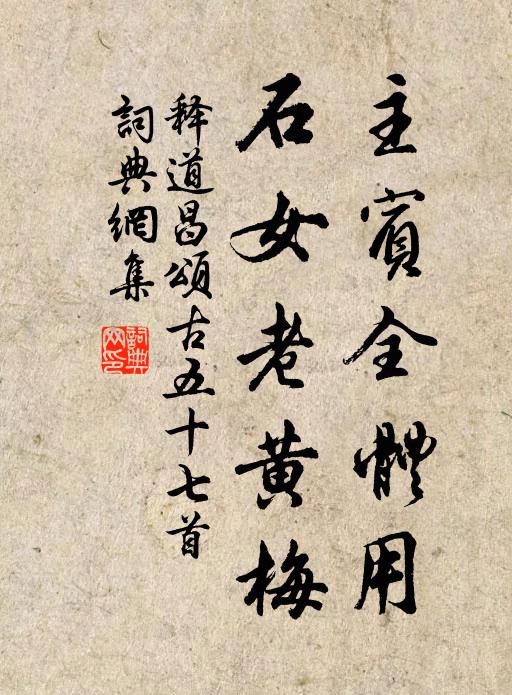 主賓全體用
石女老黄梅
释道昌頌古五十七首
詞典網集
詞典
网印